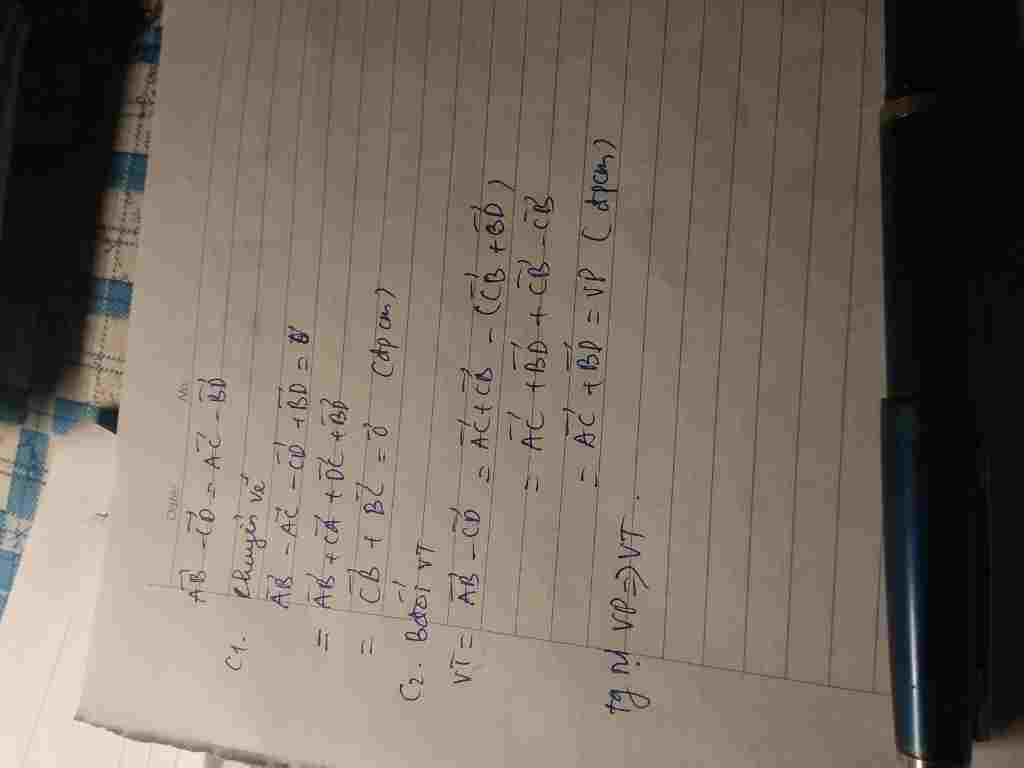 No.
Date
AB⃗ - CD⃗ = AC⃗ - BD⃗
C1. Chuyển vế
AB⃗ - AC⃗ - CD⃗ + BD⃗ = 0⃗
= AB⃗ + CA⃗ + DC⃗ + BD⃗
= CB⃗ + BC⃗ = 0⃗ (đpcm)
C2. Bđổi VT
VT = AB⃗ - CD⃗ = AC⃗ + CB⃗ - (CB⃗ + BD⃗)
= AC⃗ + BD⃗ + CB⃗ - CB⃗
= AC⃗ + BD⃗ = VP (đpcm)
tg tự VP => VT.